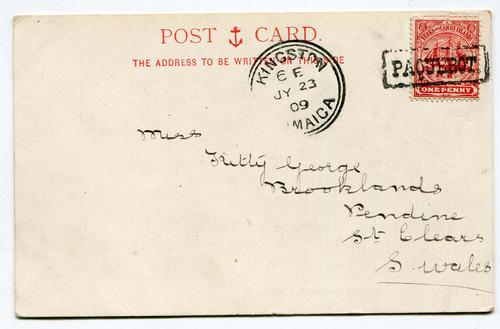 POST CARD.
THE ADDRESS TO BE WRITTEN ON THIS SIDE
KINGSTON
6 E
JY 23
09
JAMAICA
TURKS AND CAICOS ISLANDS
PAQUEBOT
ONE PENNY
Miss
Kitty George
Brooklands
Pendine
St Clears
S. Wales